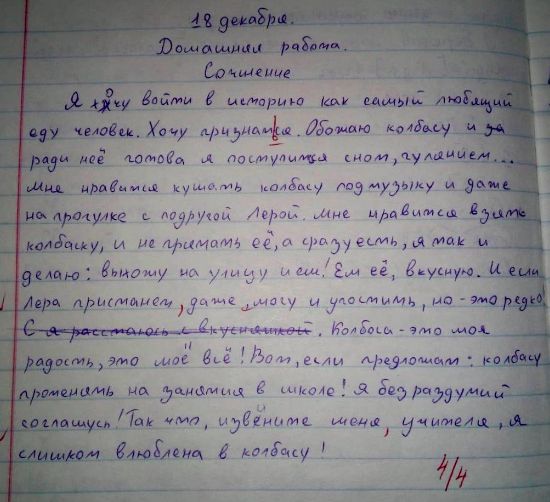 18 декабря.
Домашняя работа.
Сочинение
Я хочу войти в историю как самый любящий
еду человек. Хочу признаться. Обожаю колбасу и за
ради неё готова я поступится сном, гулянием...
Мне нравится кушать колбасу под музыку и даже
на прогулке с подругой Лерой. Мне нравится взять
колбаску, и не прятать её, а сразу есть, я так и
делаю: выхожу на улицу и ем! Ем её, вкусную. И если
Лера пристанет, даже, могу и угостить, но - это редко
С я расстаюсь с вкусняшкой. Колбоса - это моя
радость, это моё всё! Вот, если предложат: колбасу
променять на занятия в школе! Я без раздумий
соглашусь! Так что, извените меня, учителя, я
слишком влюблена в колбасу!
4/4